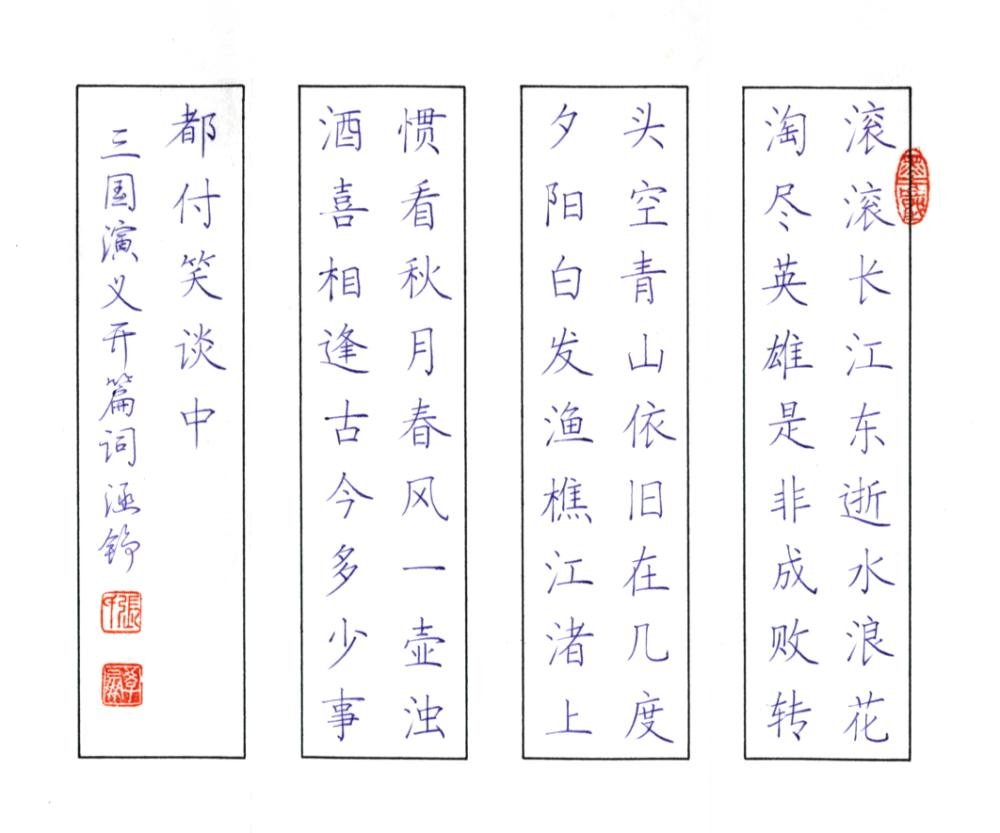 滚滚长江东逝水浪花
淘尽英雄是非成败转
头空青山依旧在几度
夕阳白发渔樵江渚上
惯看秋月春风一壶浊
酒喜相逢古今多少事
都付笑谈中
三国演义开篇词涵铮